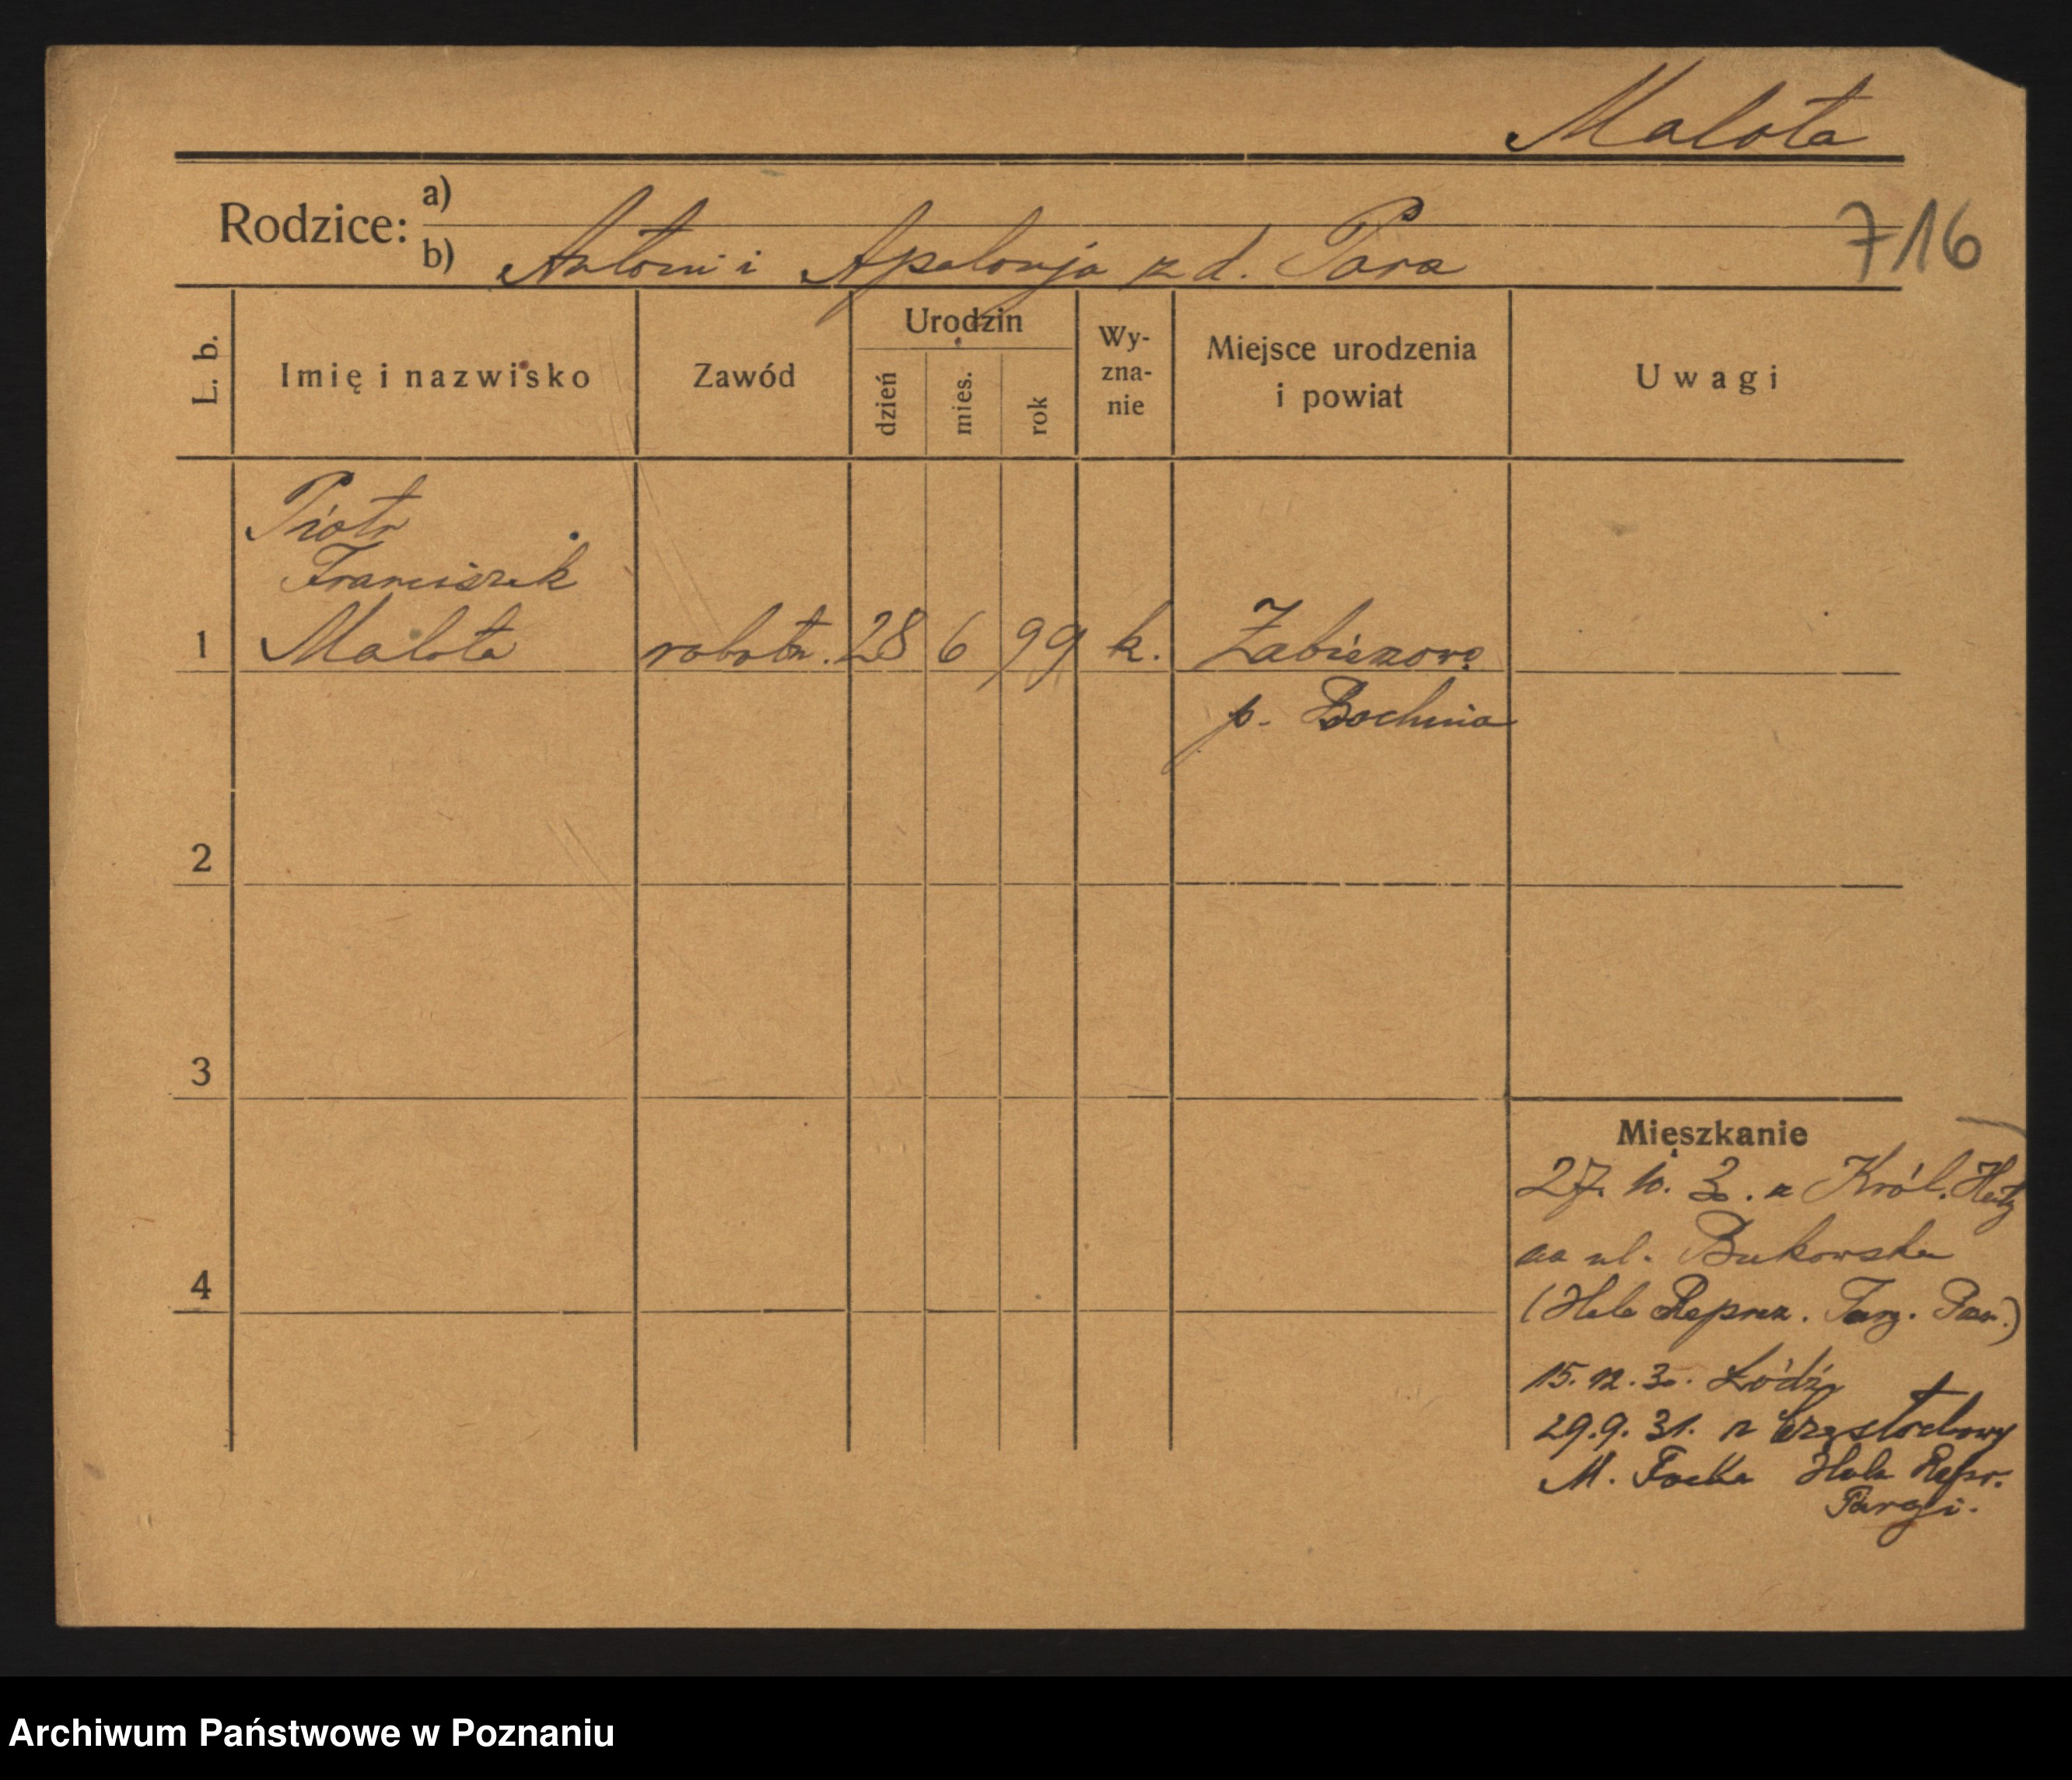 Malota
Rodzice:
a)
b) Antoni i Apolonja z d. Para
716
L. b.
Imię i nazwisko
Zawód
Urodzin
dzień
mies.
rok
Wy-
zna-
nie
Miejsce urodzenia
i powiat
Uwagi
Piotr
Franciszek
1 Malota robotn. 28 6 99 k.
p. Bochnia
2
3
4
Mieszkanie
27. 10. 30. z Król. Huty
na ul. Bukowska
(Hala Reprez. Targ. Pozn.)
15. 12. 30. Łódź
29. 9. 31. z Częstochowy
M. Focha Hala Repr.
Targi.
Archiwum Państwowe w Poznaniu